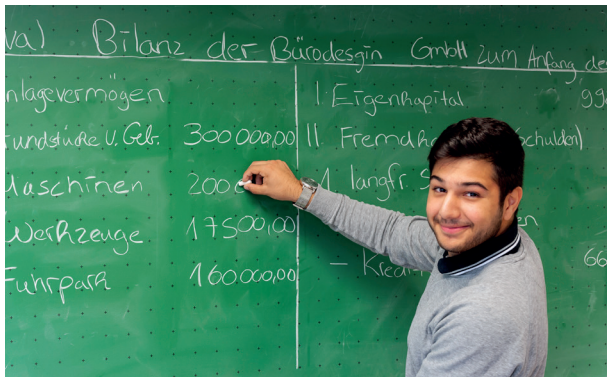 va) Bilanz der Bürodesgin GmbH zum Anfang des
nlagevermögen
rundstücke u. Geb. 300000,00
Maschinen 2000
Werkzeuge 17500,00
Fuhrpark 160.000,00
I. Eigenkapital 99
II. Fremdka chulden)
1. langfr. S
en
– Kredi 66